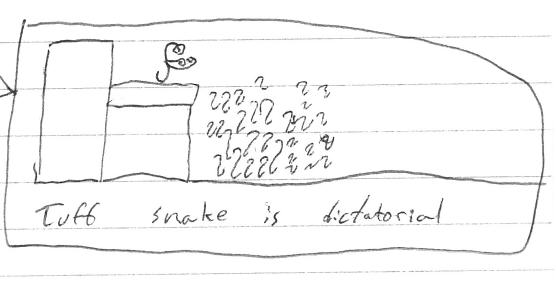 Tuff snake is dictatorial